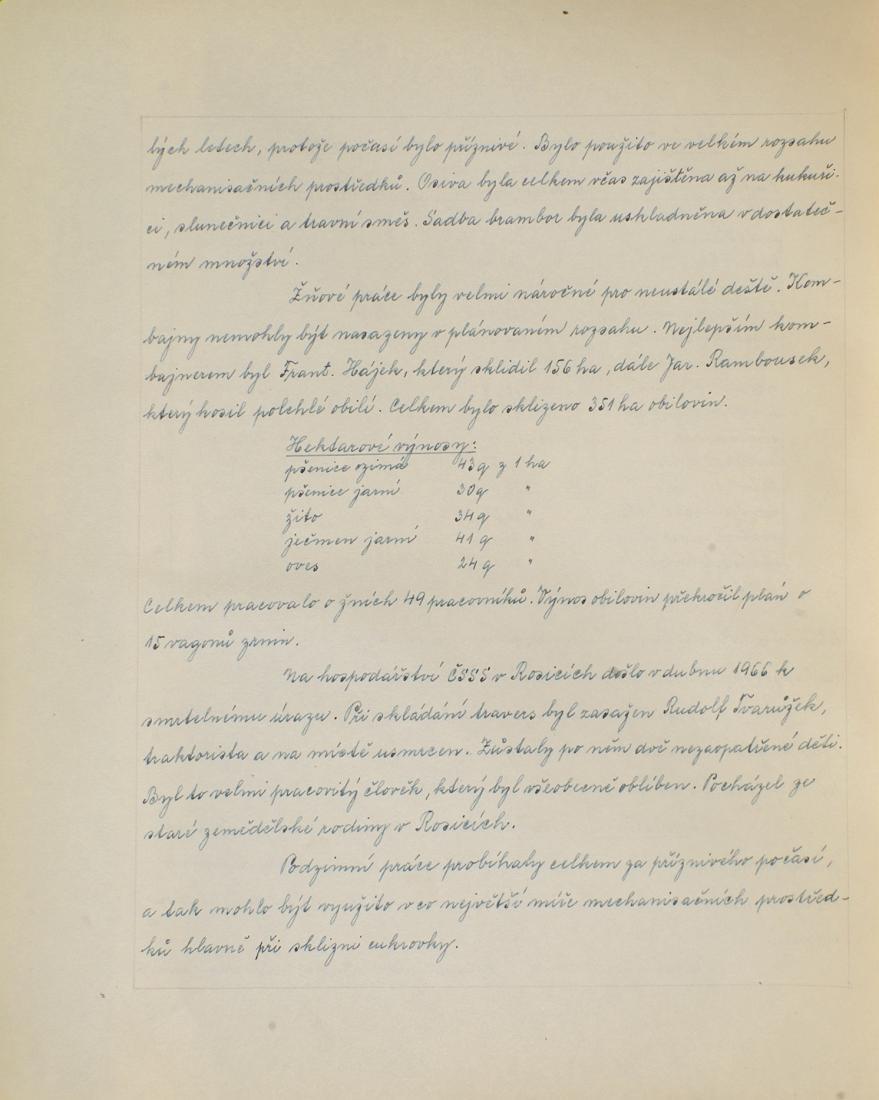 lých letech, protože počasí bylo příznivé. Bylo použito ve velkém rozsahu
mechanisačních prostředků. Osiva byla celkem včas zajištěna až na kukuři-
ci, slunečnici a travní směs. Sadba brambor byla uskladněna v dostateč-
ném množství.
Žňové práce byly velmi náročné pro neustálé deště. Kom-
bajny nemohly být nasazeny v plánovaném rozsahu. Nejlepším kom-
bajnerem byl Frant. Hájek, který sklidil 156 ha, dále Jar. Rambousek,
který kosil polehlé obilí. Celkem bylo sklizeno 351 ha obilovin.
Hektarové výnosy:
pšenice ozimá 43q z 1 ha
pšenice jarní 30q "
žito 34q "
ječmen jarní 41q "
oves 24q "
Celkem pracovalo o žních 49 pracovníků. Výnos obilovin překročil plán o
15 vagonů zrnin.
Na hospodářství ČSSS v Rosicích došlo v dubnu 1966 k
smrtelnému úrazu. Při skládání travers byl zasažen Rudolf Tvarůžek,
traktorista a na místě usmrcen. Zůstaly po něm dvě nezaopatřené děti.
Byl to velmi pracovitý člověk, který byl všeobecně oblíben. Pocházel ze
staré zemědělské rodiny v Rosicích.
Podzimní práce probíhaly celkem za příznivého počasí,
a tak mohlo být využito v co největší míře mechanisačních prostřed-
ků hlavně při sklizni cukrovky.